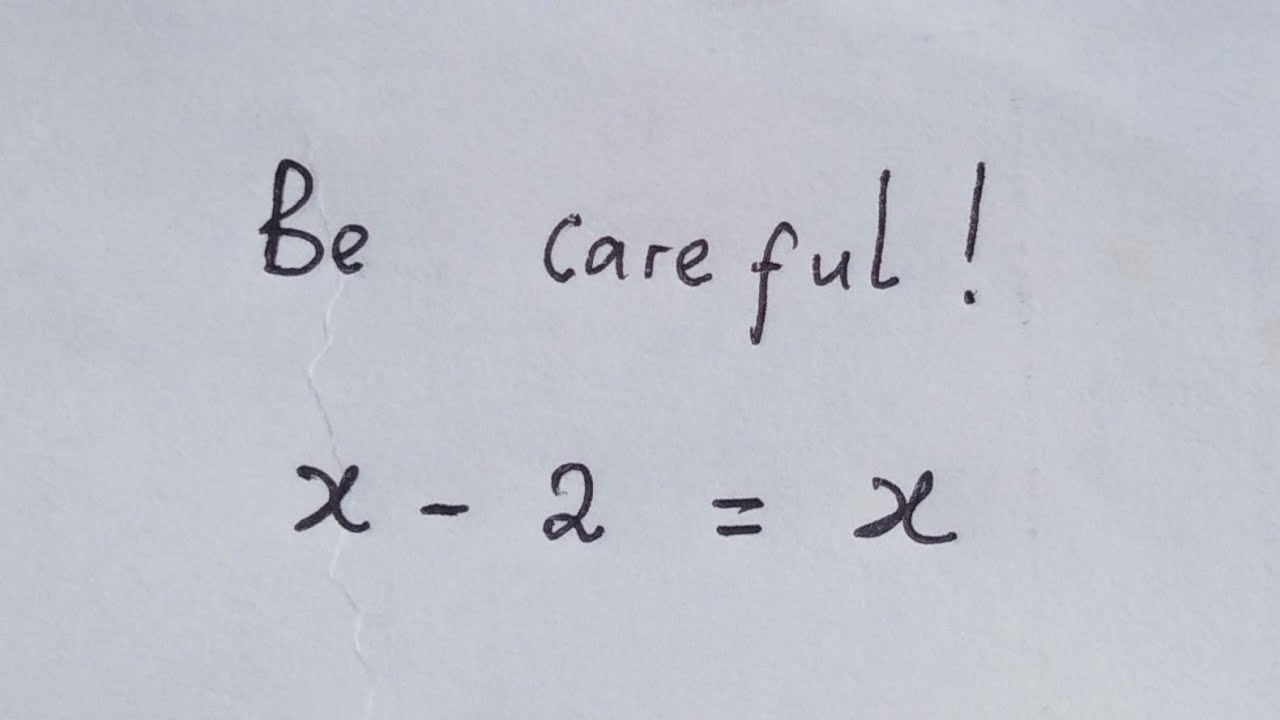 Be careful!
x - 2 = x